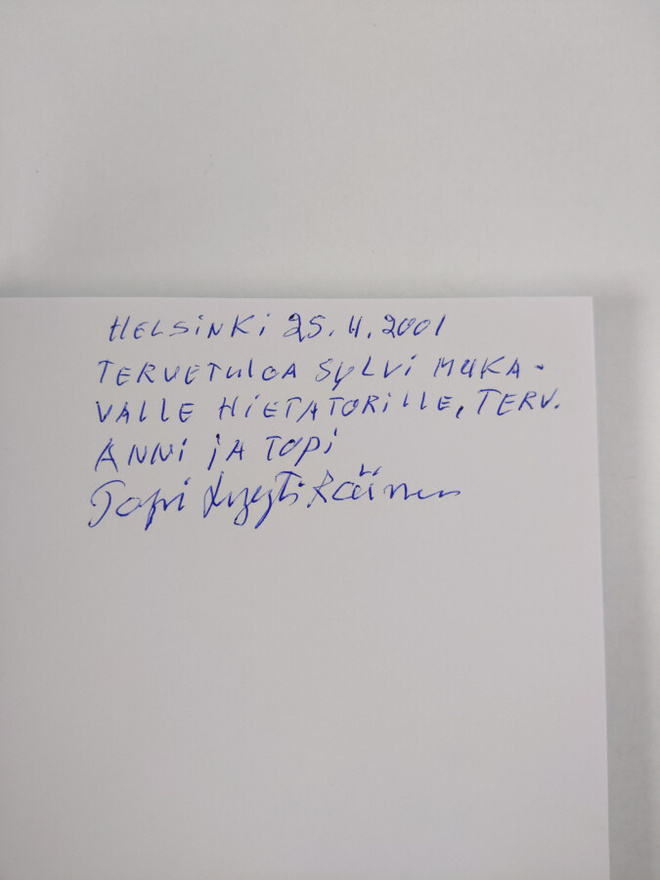 HELSINKI 25.4.2001
TERVETULOA SYLVI MUKA-
VALLE HIETATORILLE, TERV.
ANNI JA TOPI
Topi